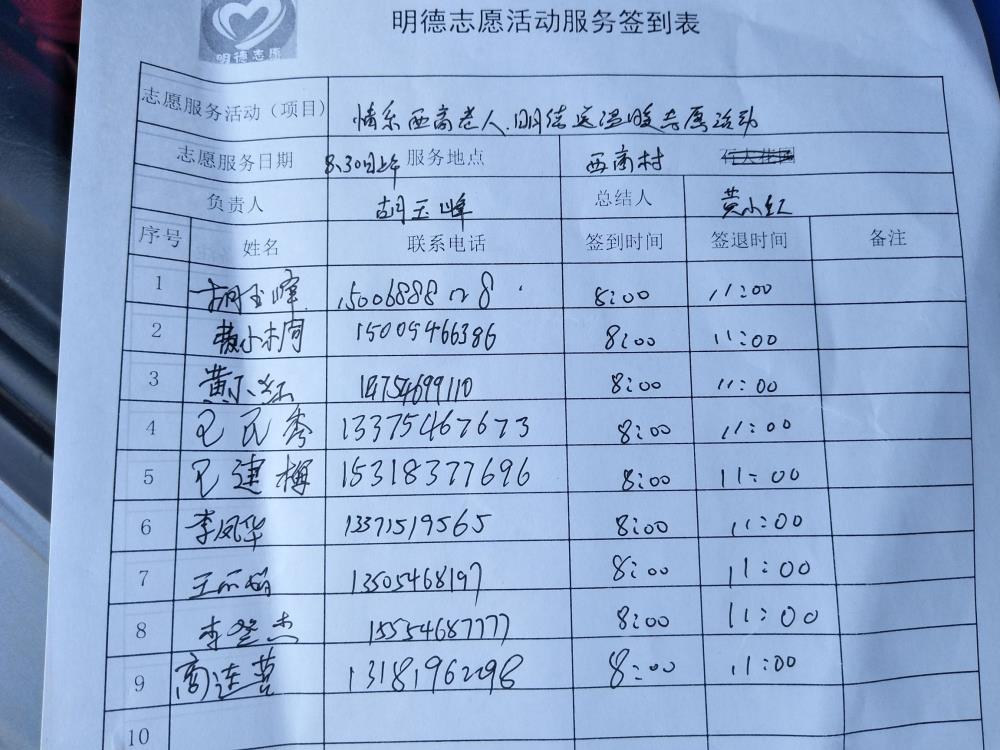 明德志愿
明德志愿活动服务签到表
志愿服务活动（项目） 情系西商老人.明德送温暖志愿活动
志愿服务日期 8.30日上午 服务地点 西商村
负责人 胡玉峰 总结人 黄小红
序号 姓名 联系电话 签到时间 签退时间 备注
1 胡玉峰 8:00 11:00
2 15005466386 8:00 11:00
3 黄小红 8:00 11:00
4 13375467673 8:00 11:00
5 建梅 15318377696 8:00 11:00
6 李凤华 13371519565 8:00 11:00
7 13505468197 8:00 11:00
8 李登杰 15554687777 8:00 11:00
9 商连营 13181962298 8:00 11:00
10